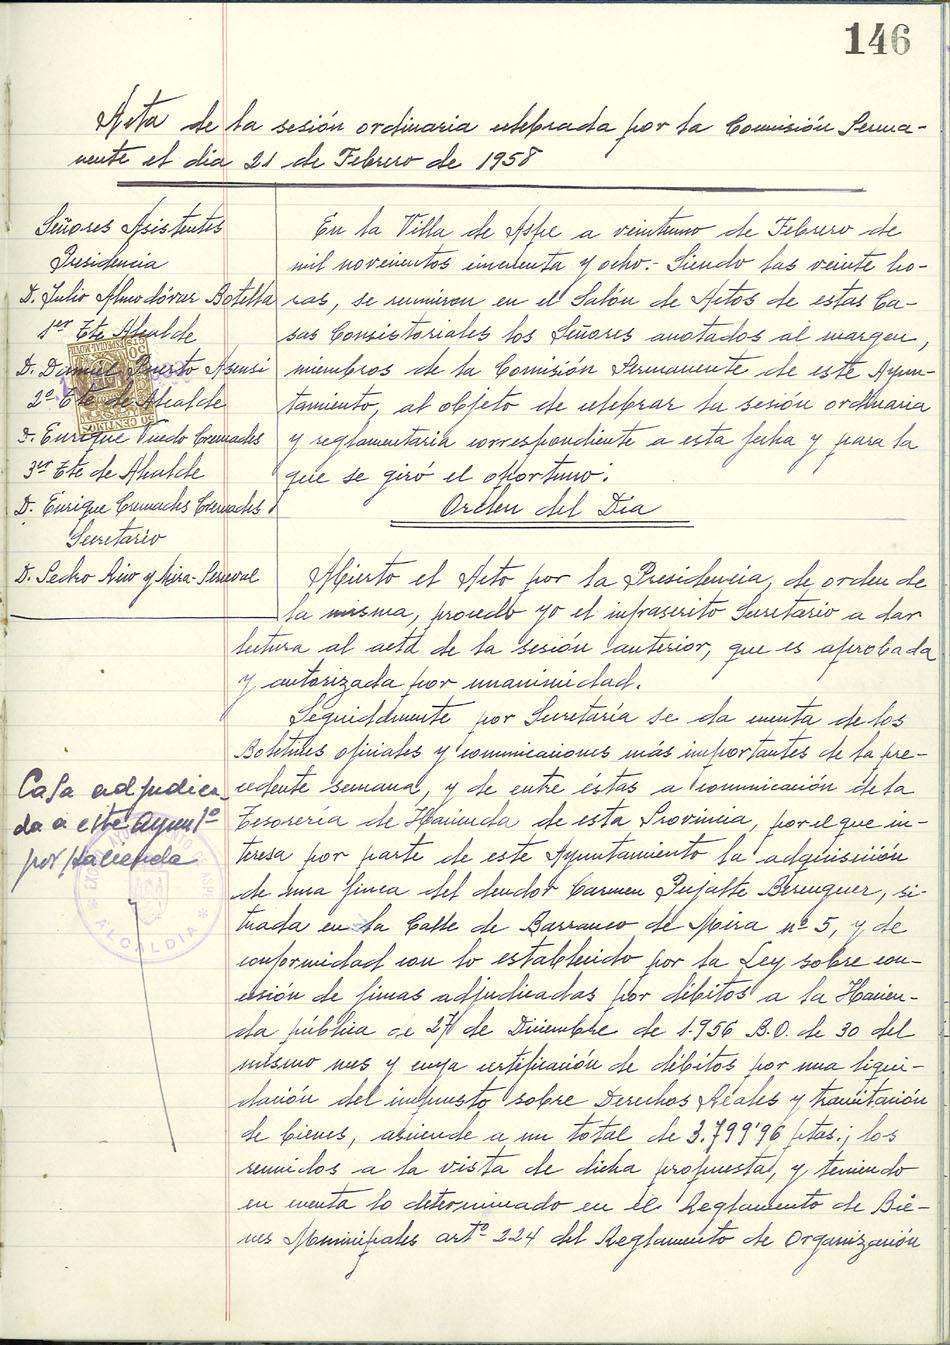 146
Acta de la sesión ordinaria celebrada por la Comisión Perma-
nente el día 21 de Febrero de 1958
Señores Asistentes
Presidencia
D. Julio Almodóvar Botella
1er Tte Alcalde
D. Daniel Puerto Asensi
2º Tte de Alcalde
D. Enrique Puedo Cremades
3er Tte de Alcalde
D. Enrique Cremades Cremades
Secretario
D. Pedro Rico y Mira-Perceval
En la Villa de Aspe a veintiuno de Febrero de
mil novecientos cincuenta y ocho.- Siendo las veinte ho-
ras, se reunieron en el Salón de Actos de estas Ca-
sas Consistoriales los Señores anotados al margen,
miembros de la Comisión Permanente de este Ayun-
tamiento, al objeto de celebrar la sesión ordinaria
y reglamentaria correspondiente a esta fecha y para la
que se giró el oportuno:
Orden del Día
Abierto el Acto por la Presidencia, de orden de
la misma, procedo yo el infrascrito Secretario a dar
lectura al acta de la sesión anterior, que es aprobada
y autorizada por unanimidad.
Seguidamente por Secretaría se da cuenta de los
Boletines oficiales y comunicaciones más importantes de la pre-
cedente semana, y de entre éstas a comunicación de la
Tesorería de Hacienda de esta Provincia, por el que in-
teresa por parte de este Ayuntamiento la adquisición
de una finca del deudor Carmen Pujalte Berenguer, si-
tuada en la Calle de Barranco de Mira nº 5, y de
conformidad con lo establecido por la Ley sobre con-
cesión de fincas adjudicadas por débitos a la Hacien-
da pública de 27 de Diciembre de 1.956 B.O. de 30 del
mismo mes y cuya certificación de débitos por una liqui-
dación del impuesto sobre Derechos Reales y tramitación
de bienes, asciende a un total de 3.799'96 ptas.; los
reunidos a la vista de dicha propuesta, y teniendo
en cuenta lo determinado en el Reglamento de Bie-
nes Municipales artº 224 del Reglamento de Organización
Casa adjudica-
da a este Ayunto
por Hacienda
ALCALDIA
50 CENTIMOS
ESPECIAL MOVIL